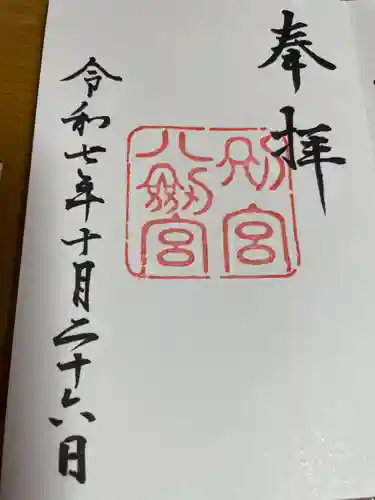 奉拝
別宮
八剱宮
令和七年十月二十六日